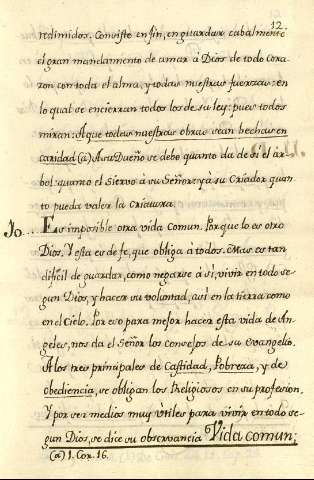 12.
redimidos. Consiste en fin, en guardar cabalmente
el gran mandamiento de amar à Dios de todo cora-
zon con toda el alma, y todas nuestras fuerzas: en
lo qual se encierran todos los de su ley: pues todos
miran: A que todas nuestras obras sean hechas en
caridad (a) A su Dueño se debe quanto da de si el ár-
bol: quanto el Siervo à su Señor: y à su Criador quan-
to pueda valer la criatura.
Io... Es imposible otra vida comun. Porque lo es otro
Dios. Y esta es de fe, que obliga à todos. Mas es tan
dificil de guardar, como negarse à sì, vivir en todo se-
gun Dios, y hacer su voluntad, asì en la tierra como
en el Cielo. Por eso para mejor hacer esta vida de An-
geles, nos da el Señor los consejos de su evangelio.
A los tres principales de Castidad, Pobreza, y de
obediencia, se obligan los Religiosos en su profesion.
Y por ser medios muy ùtiles para vivir en todo se-
gun Dios, se dice su observancia Vida comun;
(a) 1. Cor. 16.